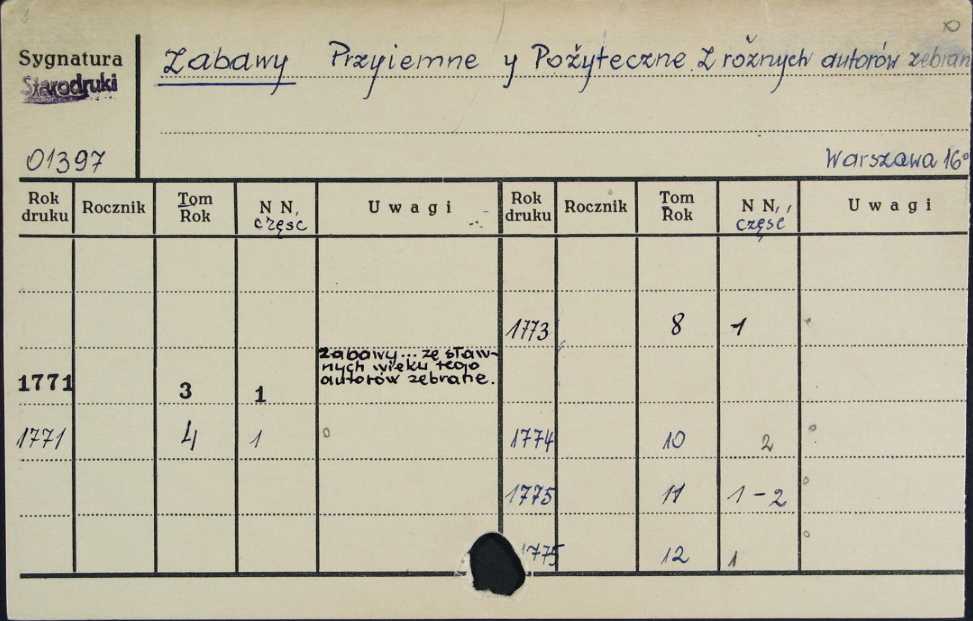 Sygnatura
Starodruki
01397
Zabawy Przyiemne y Pożyteczne. Z rożnych autorów zebran
Warszawa 16°
Rok druku Rocznik Tom Rok N N, część Uwagi Rok druku Rocznik Tom Rok N N, część Uwagi
1773 8 1
1771 3 1 Zabawy... ze sław-
nych wieku tego
autorów zebrane.
1771 4 1 1774 10 2
1775 11 1-2
1775 12 1